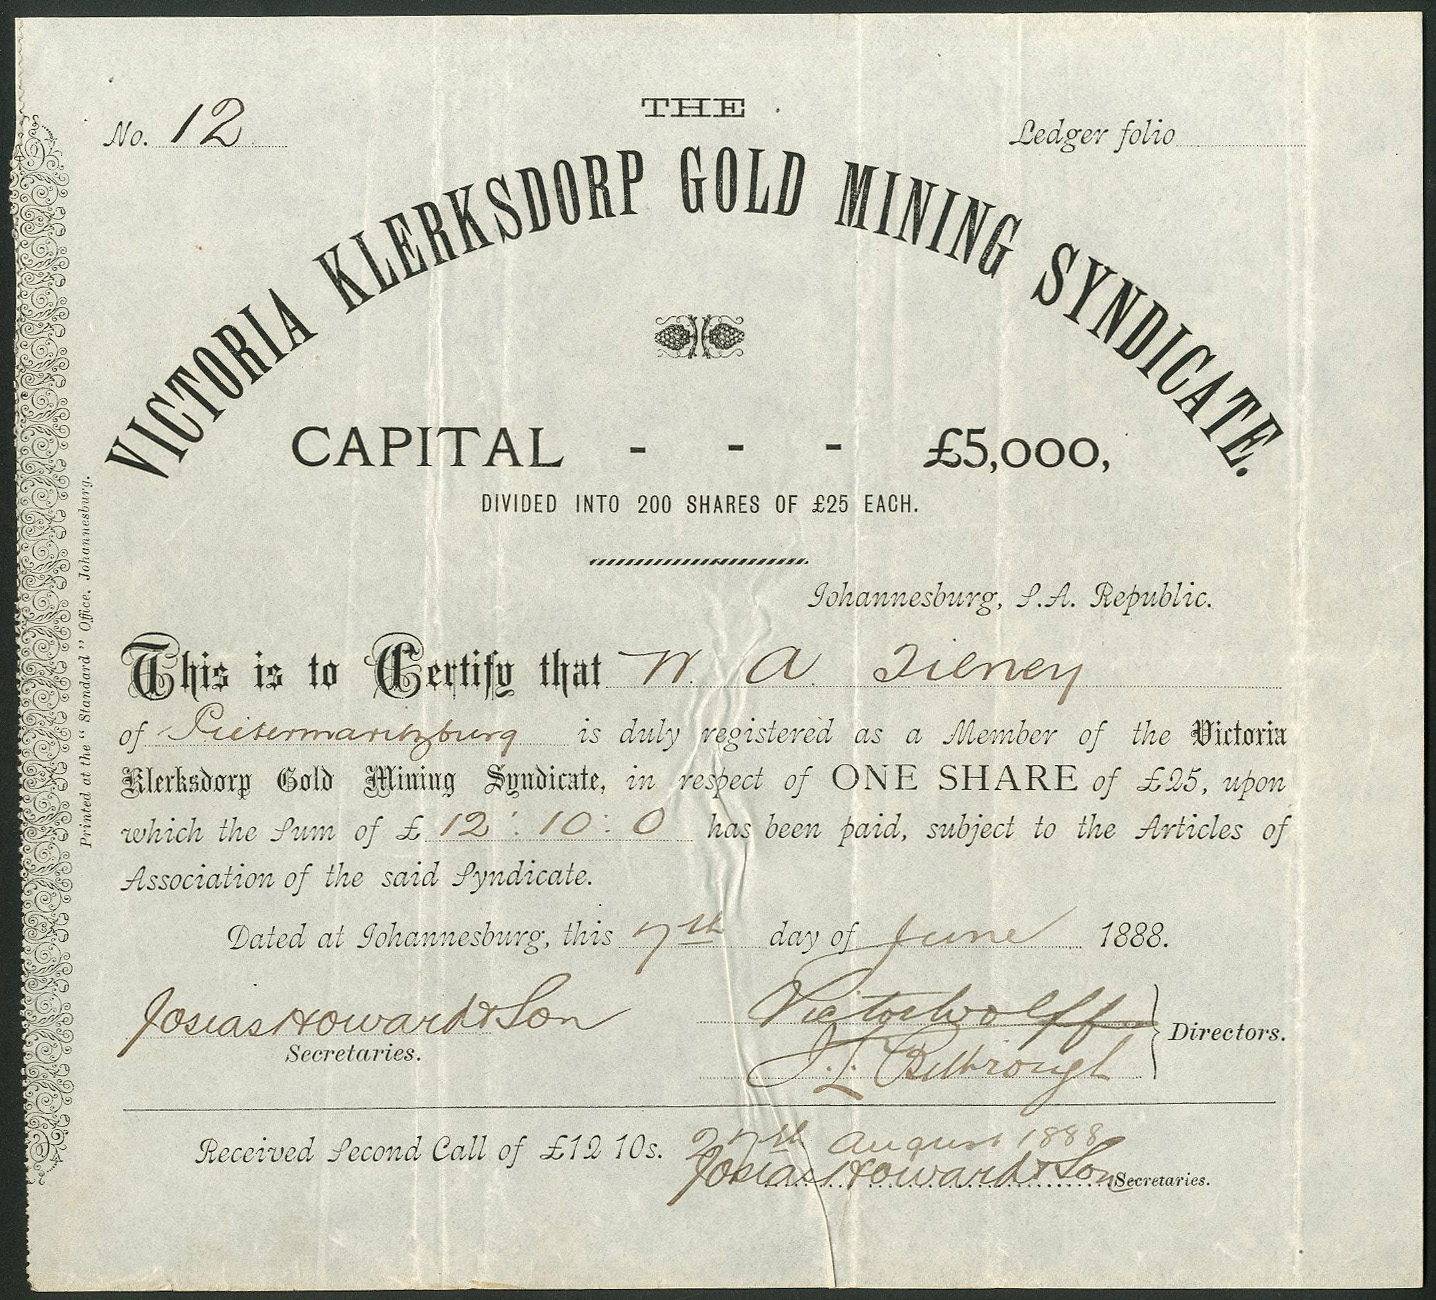 THE
No. 12
Ledger folio
VICTORIA KLERKSDORP GOLD MINING SYNDICATE.
CAPITAL - - - £5,000,
DIVIDED INTO 200 SHARES OF £25 EACH.
Johannesburg, S.A. Republic.
This is to Certify that W. A. Tilney
of Pietermaritzburg is duly registered as a Member of the Victoria
Klerksdorp Gold Mining Syndicate, in respect of ONE SHARE of £25, upon
which the Sum of £ 12 : 10 : 0 has been paid, subject to the Articles of
Association of the said Syndicate.
Dated at Johannesburg, this 7th day of June 1888.
Josias Howard & Son
Secretaries.
Victor Wolff
J. L. Bilbrough
Directors.
Received Second Call of £12 10s. 27th August 1888
Josias Howard & Son Secretaries.
Printed at the "Standard" Office, Johannesburg.